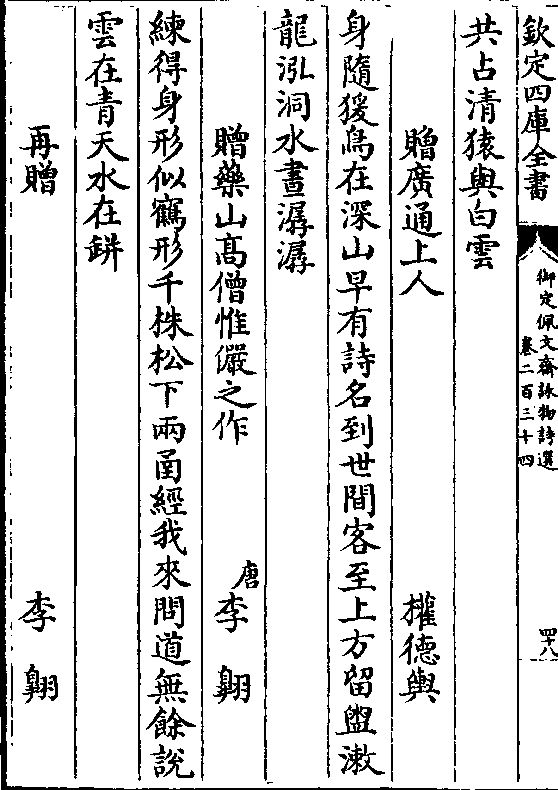 欽定四庫全書
御定佩文齋詠物詩選
卷二百三十四
四十八
共占清猿與白雲
贈廣通上人 權德輿
身隨猨鳥在深山早有詩名到世間客至上方留盥漱
龍泓洞水晝潺潺
贈藥山高僧惟儼之作 唐 李翺
練得身形似鶴形千株松下兩函經我來問道無餘說
雲在青天水在缾
再贈 李翺